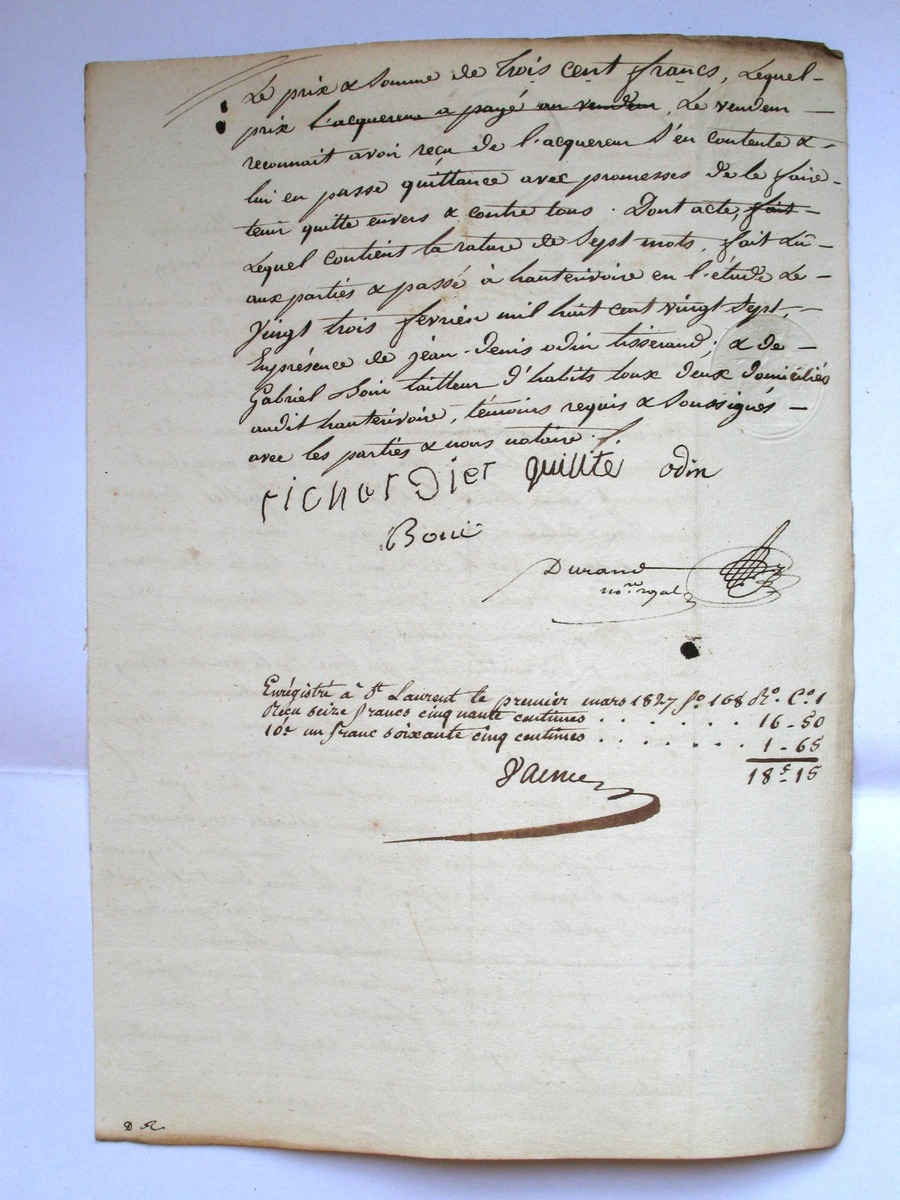 Le prix & Somme de trois cent francs, Lequel
prix l'acquereur a payé au vendeur, Le vendeur
reconnait avoir reçu de l'acquereur S'en contente &
lui en passe quittance avec promesses de le faire
tenir quitte envers & contre tous. Dont acte, fait
Lequel contient la rature de Sept mots, fait Lû
aux parties & passé à hauterivoire en l'étude Le
Vingt trois fevrier mil huit cent vingt Sept,
En présence de jean-denis odin tisserand, & de
Gabriel tailleur d'habits tous deux domiciliés
audit hauterivoire, témoins requis & Soussignés
avec les parties & nous notaire.
richardier quitte odin
Durand
no.re royal
Enrégistré à St Laurent le premier mars 1827 fo. 168 Ro. C.o 1
Reçu seize francs cinquante centimes . . . . . . 16-50
10e un franc soixante cinq centimes . . . . . . . 1-65
18f 15
D R